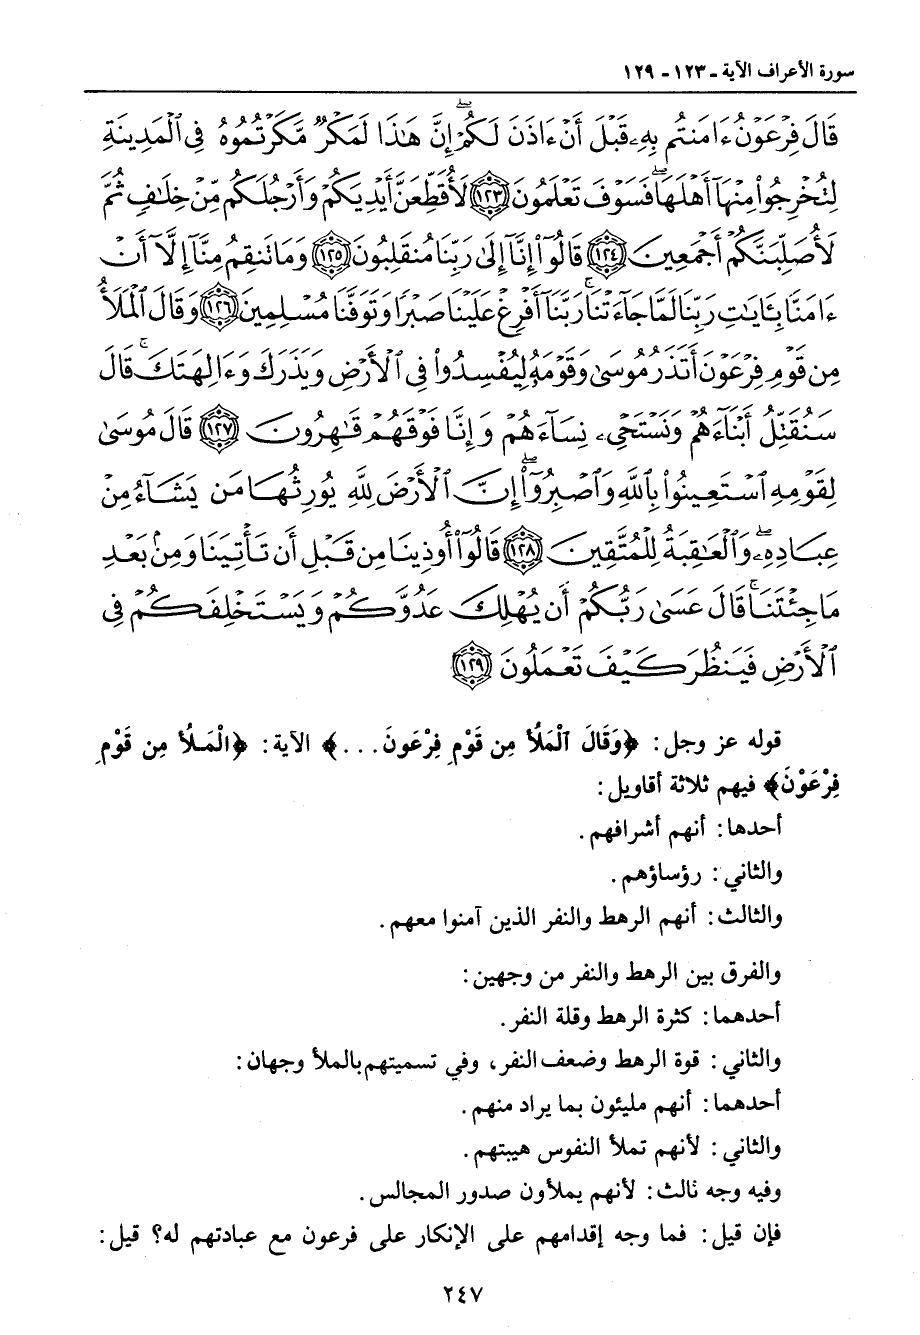 سورة الأعراف الآية ـ ١٢٣ ـ ١٢٩
قَالَ فِرْعَوْنُ ءَامَنتُم بِهِۦ قَبْلَ أَنْ ءَاذَنَ لَكُمْ ۖ إِنَّ هَٰذَا لَمَكْرٌ مَّكَرْتُمُوهُ فِى ٱلْمَدِينَةِ
لِتُخْرِجُوا۟ مِنْهَآ أَهْلَهَا ۖ فَسَوْفَ تَعْلَمُونَ ﴿١٢٣﴾ لَأُقَطِّعَنَّ أَيْدِيَكُمْ وَأَرْجُلَكُم مِّنْ خِلَٰفٍ ثُمَّ
لَأُصَلِّبَنَّكُمْ أَجْمَعِينَ ﴿١٢٤﴾ قَالُوٓا۟ إِنَّآ إِلَىٰ رَبِّنَا مُنقَلِبُونَ ﴿١٢٥﴾ وَمَا تَنقِمُ مِنَّآ إِلَّآ أَنْ
ءَامَنَّا بِـَٔايَٰتِ رَبِّنَا لَمَّا جَآءَتْنَا ۚ رَبَّنَآ أَفْرِغْ عَلَيْنَا صَبْرًا وَتَوَفَّنَا مُسْلِمِينَ ﴿١٢٦﴾ وَقَالَ ٱلْمَلَأُ
مِن قَوْمِ فِرْعَوْنَ أَتَذَرُ مُوسَىٰ وَقَوْمَهُۥ لِيُفْسِدُوا۟ فِى ٱلْأَرْضِ وَيَذَرَكَ وَءَالِهَتَكَ ۚ قَالَ
سَنُقَتِّلُ أَبْنَآءَهُمْ وَنَسْتَحْىِۦ نِسَآءَهُمْ وَإِنَّا فَوْقَهُمْ قَٰهِرُونَ ﴿١٢٧﴾ قَالَ مُوسَىٰ
لِقَوْمِهِ ٱسْتَعِينُوا۟ بِٱللَّهِ وَٱصْبِرُوٓا۟ ۖ إِنَّ ٱلْأَرْضَ لِلَّهِ يُورِثُهَا مَن يَشَآءُ مِنْ
عِبَادِهِۦ ۖ وَٱلْعَٰقِبَةُ لِلْمُتَّقِينَ ﴿١٢٨﴾ قَالُوٓا۟ أُوذِينَا مِن قَبْلِ أَن تَأْتِيَنَا وَمِنۢ بَعْدِ
مَا جِئْتَنَا ۚ قَالَ عَسَىٰ رَبُّكُمْ أَن يُهْلِكَ عَدُوَّكُمْ وَيَسْتَخْلِفَكُمْ فِى
ٱلْأَرْضِ فَيَنظُرَ كَيْفَ تَعْمَلُونَ ﴿١٢٩﴾
قوله عز وجل: ﴿وَقَالَ ٱلْمَلأُ مِن قَوْمِ فِرْعَونَ . . .﴾ الآية: ﴿الْمَلأُ مِن قَوْمِ
فِرْعَوْنَ﴾ فيهم ثلاثة أقاويل:
أحدها: أنهم أشرافهم.
والثاني: رؤساؤهم.
والثالث: أنهم الرهط والنفر الذين آمنوا معهم.
والفرق بين الرهط والنفر من وجهين:
أحدهما: كثرة الرهط وقلة النفر.
والثاني: قوة الرهط وضعف النفر، وفي تسميتهم بالملأ وجهان:
أحدهما: أنهم مليئون بما يراد منهم.
والثاني: لأنهم تملأ النفوس هيبتهم.
وفيه وجه ثالث: لأنهم يملأون صدور المجالس.
فإن قيل: فما وجه إقدامهم على الإنكار على فرعون مع عبادتهم له؟ قيل:
٢٤٧